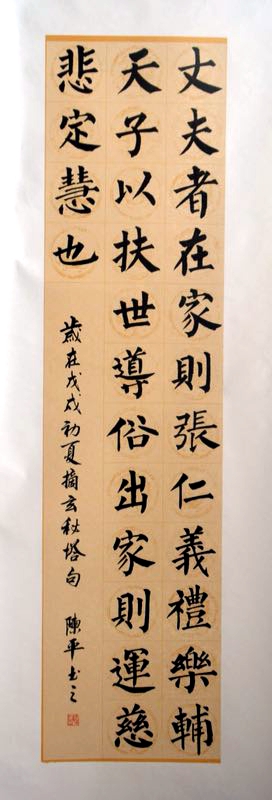 丈夫者在家則張仁義禮樂輔
天子以扶世導俗出家則運慈
悲定慧也
歲在戊戌初夏摘玄秘塔句 陳平书之